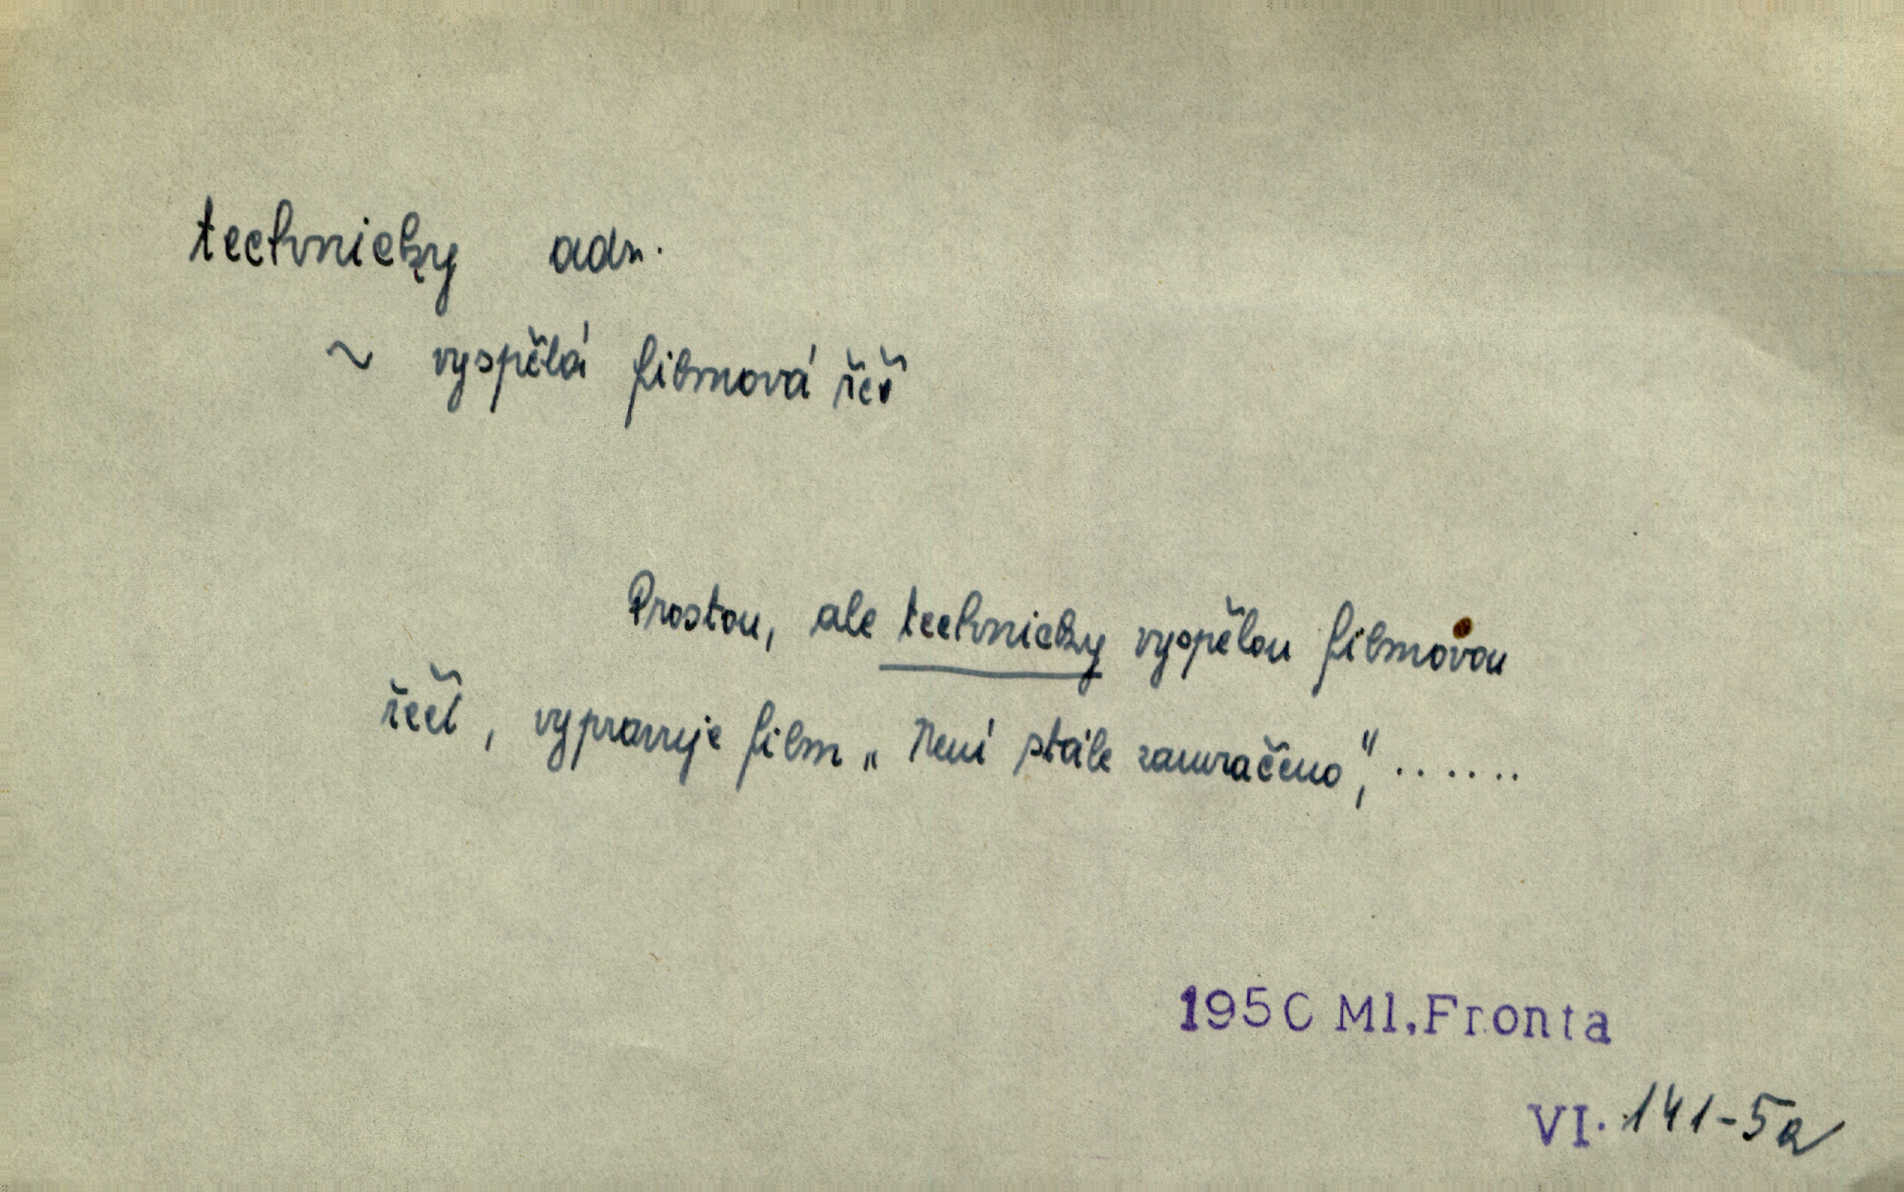 technicky adv.
~ vyspělá filmová řeč
Prostou, ale technicky vyspělou filmovou
řečí, vypravuje film „Není stále zamračeno“, ......
1950 Ml.Fronta
VI. 141-5a